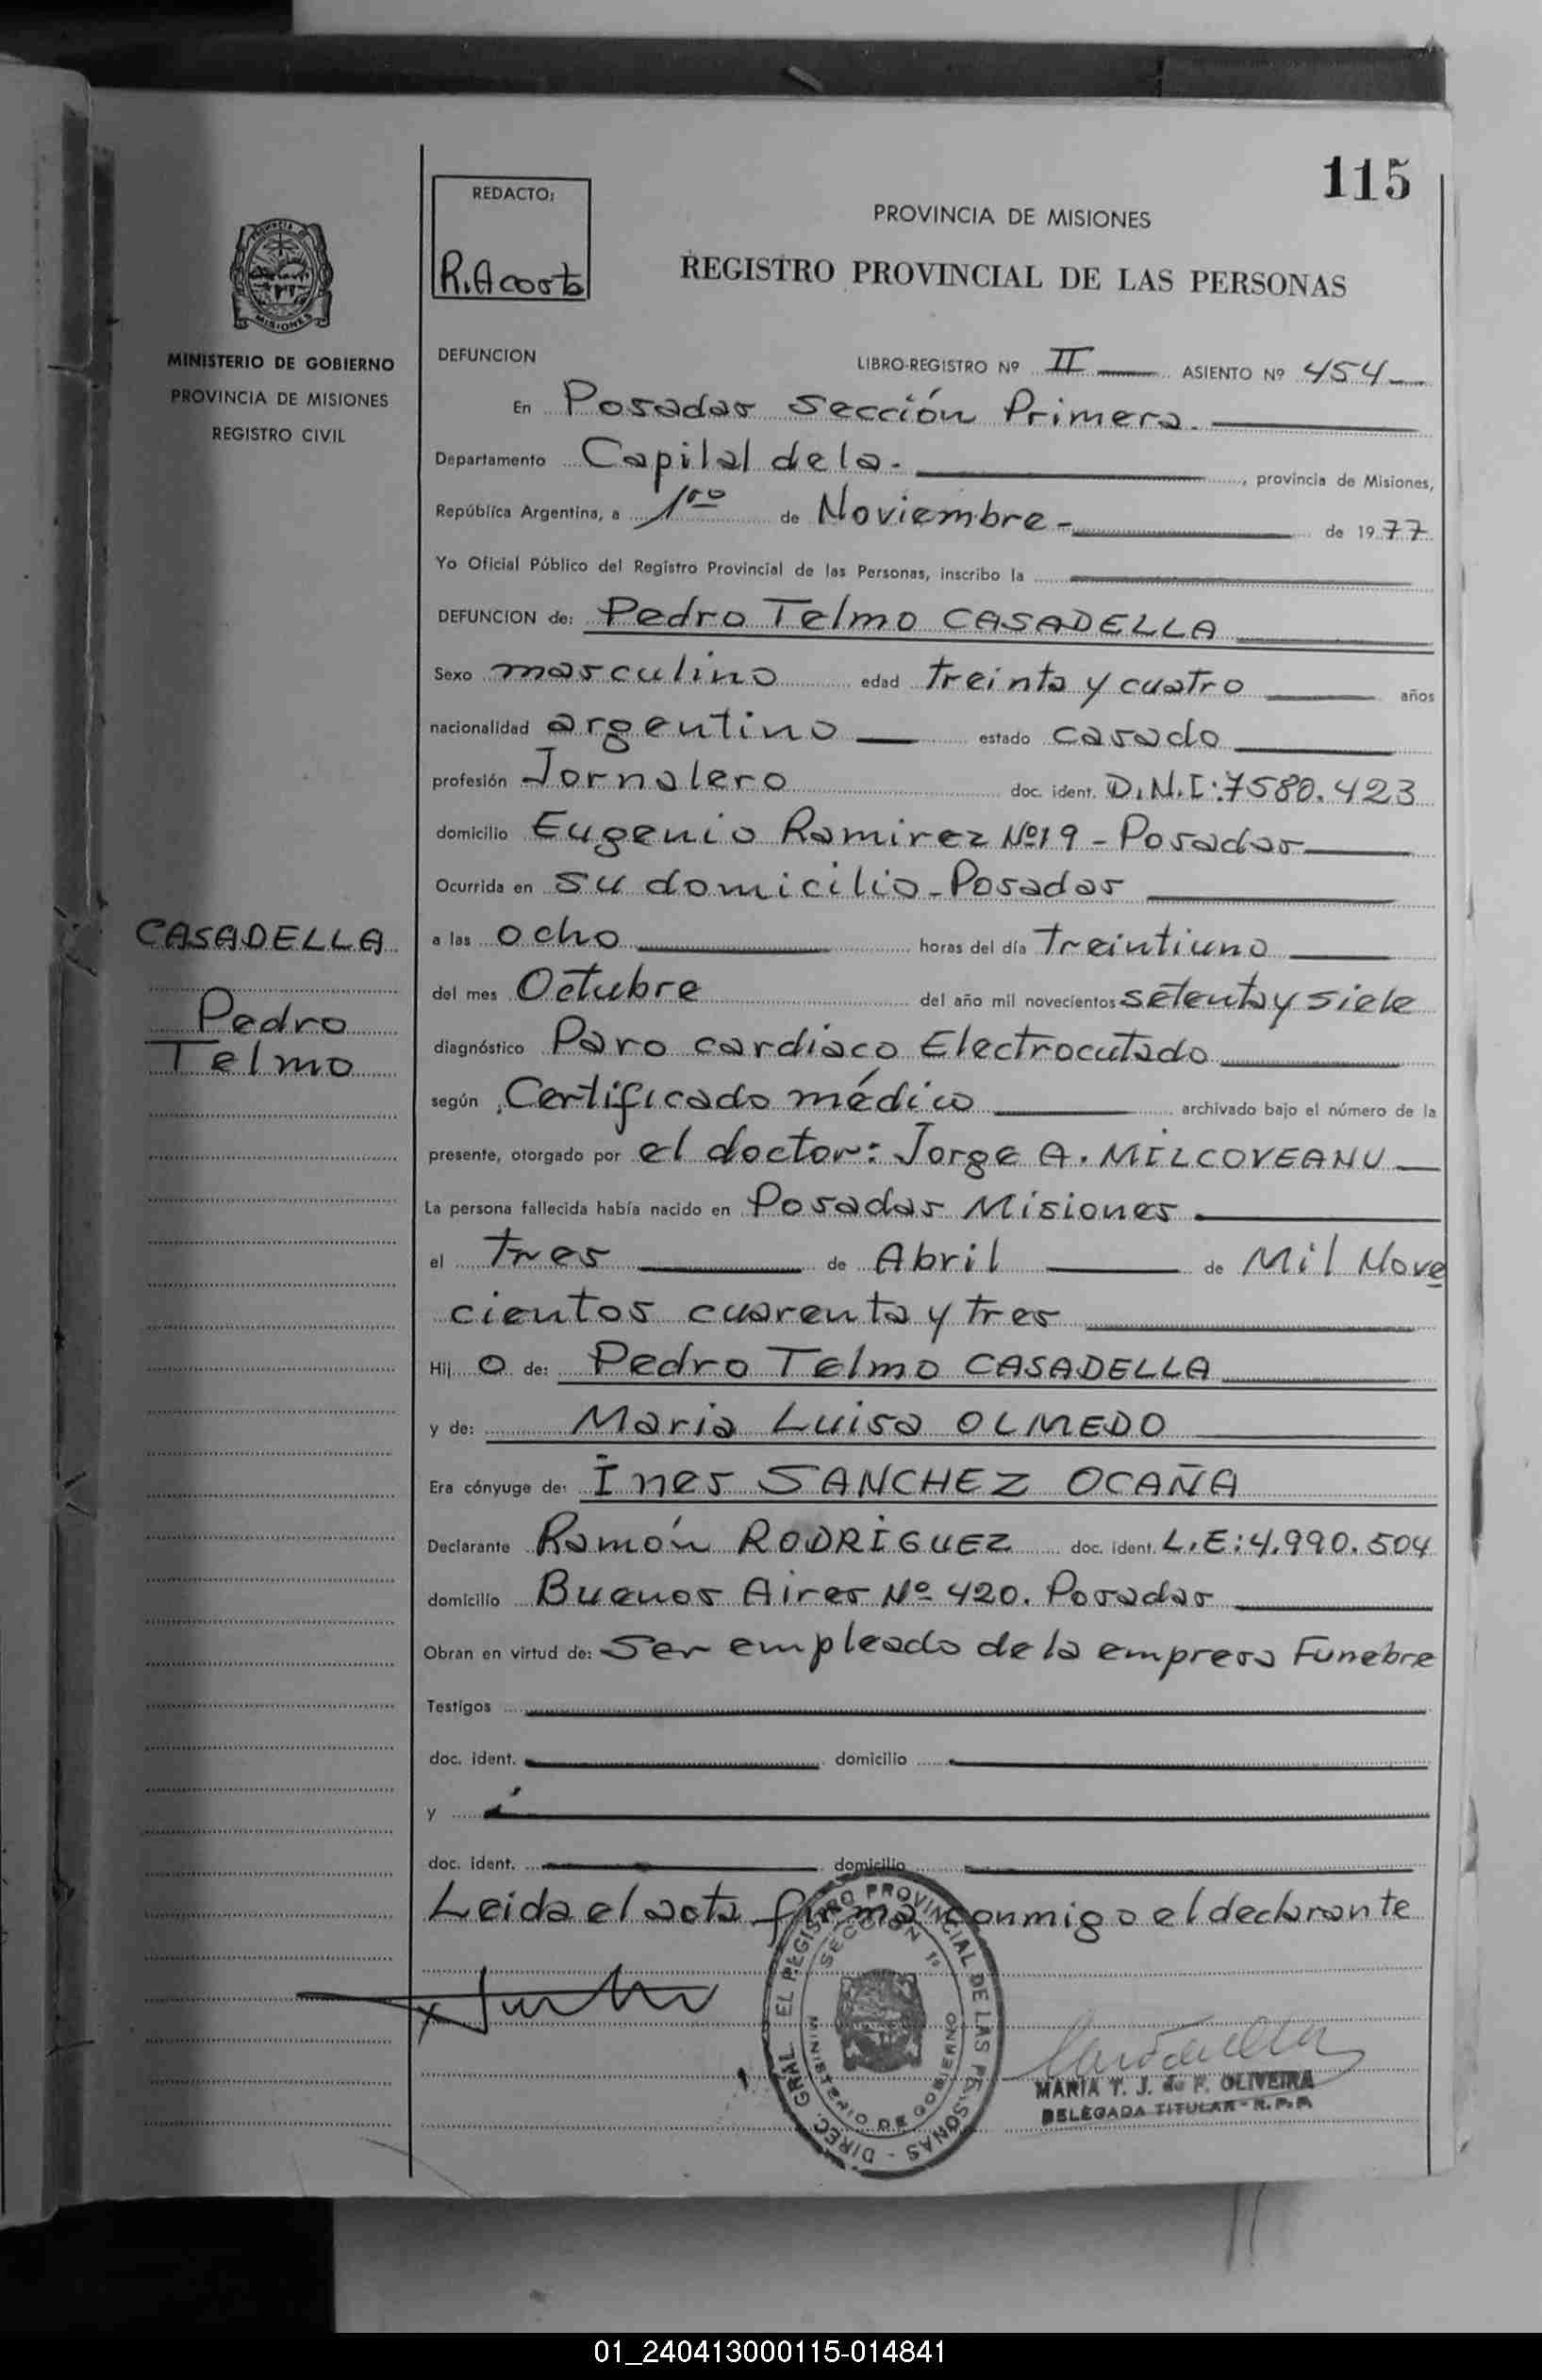 115
REDACTO:
R. Acosta
PROVINCIA DE MISIONES
REGISTRO PROVINCIAL DE LAS PERSONAS
PROVINCIA DE
MISIONES
MINISTERIO DE GOBIERNO
PROVINCIA DE MISIONES
REGISTRO CIVIL
DEFUNCION LIBRO-REGISTRO Nº II ASIENTO Nº 454
En Posadas Sección Primera.
Departamento Capital de la - , provincia de Misiones,
República Argentina, a 1ro de Noviembre - de 1977
Yo Oficial Público del Registro Provincial de las Personas, inscribo la
DEFUNCION de: Pedro Telmo CASADELLA
Sexo masculino edad treinta y cuatro años
nacionalidad argentino estado casado
profesión Jornalero doc. ident. D.N.I:7580.423
domicilio Eugenio Ramirez Nº19 - Posadas
Ocurrida en su domicilio - Posadas
CASADELLA
Pedro
Telmo
a las ocho horas del día treintiuno
del mes Octubre del año mil novecientos setenta y siete
diagnóstico Paro cardiaco Electrocutado
según Certificado médico archivado bajo el número de la
presente, otorgado por el doctor: Jorge A. MILCOVEANU
La persona fallecida había nacido en Posadas Misiones
el tres de Abril de Mil Nove
cientos cuarenta y tres
Hij o de: Pedro Telmo CASADELLA
y de: Maria Luisa OLMEDO
Era cónyuge de: Ines SANCHEZ OCAÑA
Declarante Ramón RODRIGUEZ doc. ident. L.E:4.990.504
domicilio Buenos Aires Nº 420. Posadas
Obran en virtud de: Ser empleado de la empresa Funebre
Testigos
doc. ident. domicilio
y
doc. ident. domicilio
Leida el acta firma conmigo el declarante
DIREC. GRAL. EL REGISTRO PROVINCIAL DE LAS PERSONAS
SECCION 1ª
MINISTERIO DE GOBIERNO
MARIA T. J. de F. OLIVEIRA
DELEGADA TITULAR - R.P.P.
01_240413000115-014841